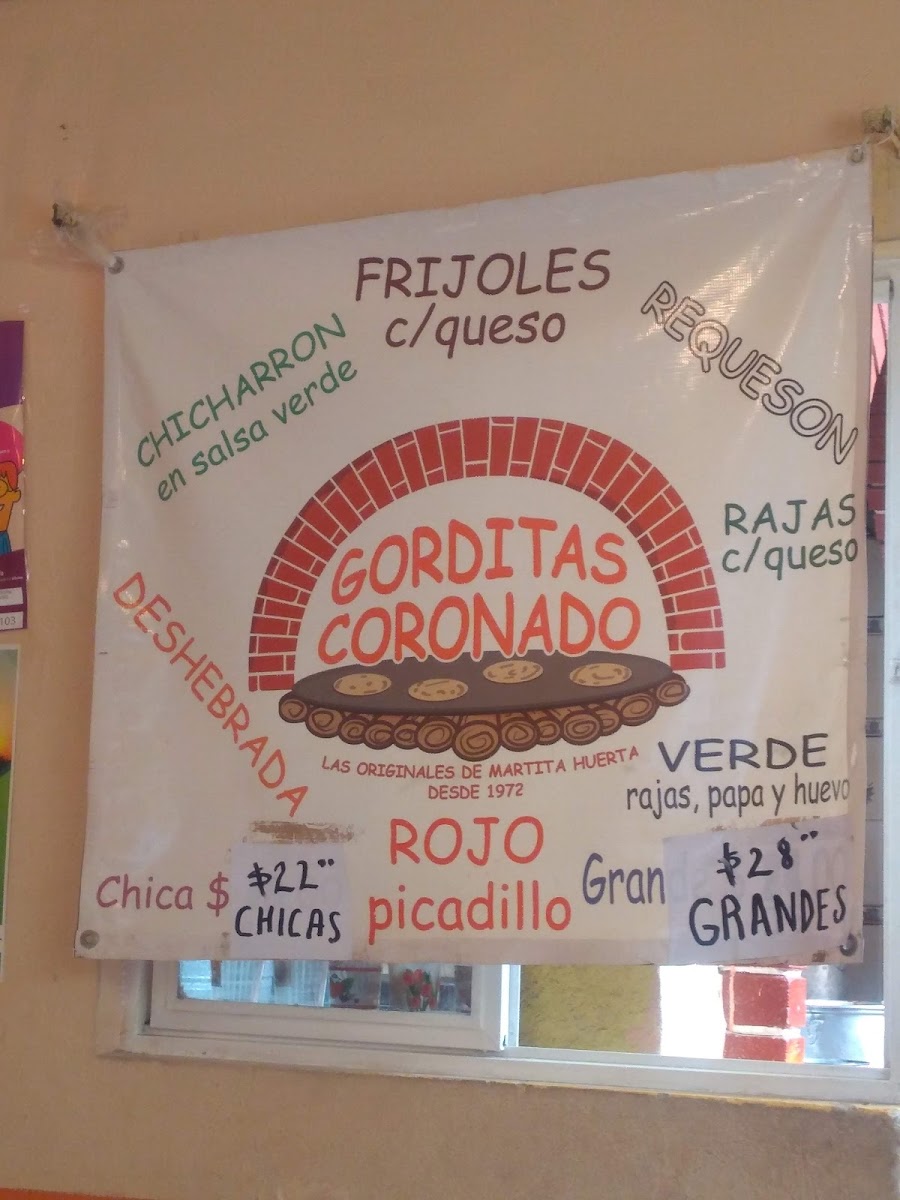 FRIJOLES
c/queso
CHICHARRON
en salsa verde
REQUESON
RAJAS
c/queso
GORDITAS
CORONADO
DESHEBRADA
LAS ORIGINALES DE MARTITA HUERTA
DESDE 1972
VERDE
rajas, papa y huevo
ROJO
picadillo
Chica $
$22°°
CHICAS
Gran
$28°°
GRANDES
103